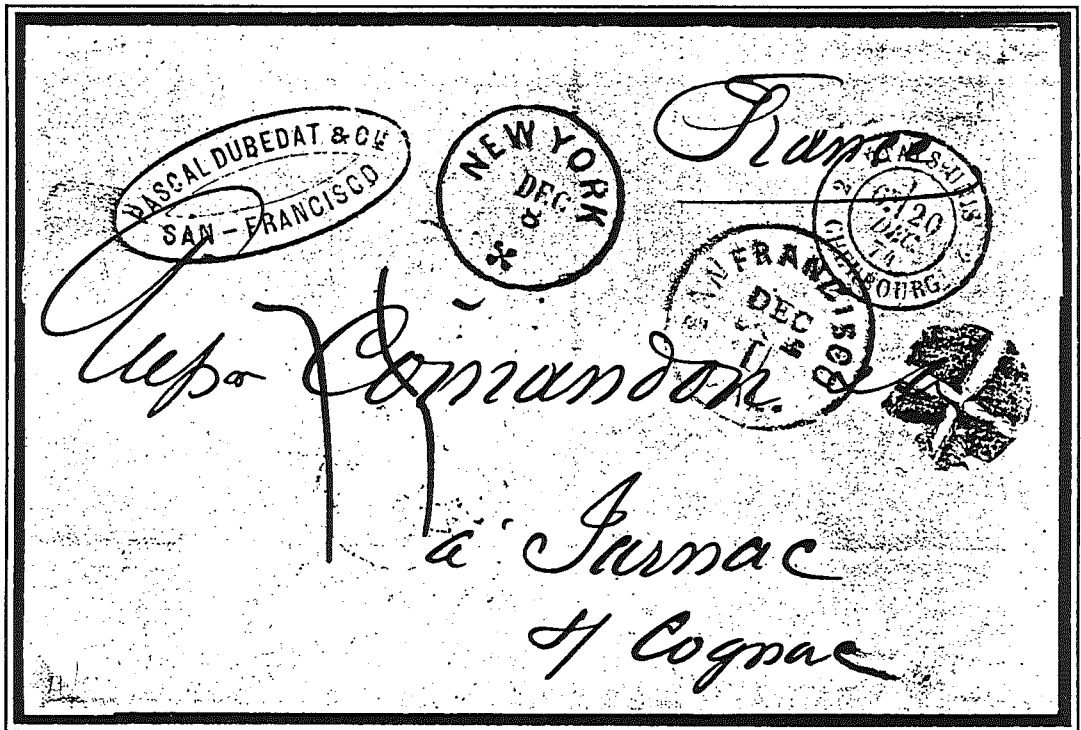 PASCAL DUBEDAT & CIE
SAN-FRANCISCO
NEW YORK
DEC
8
France
ETATS-UNIS
2 CHERBOURG 2
20
DEC
74
SAN FRANCISCO
DEC
1
Comandon.
à Jarnac
s/ Cognac